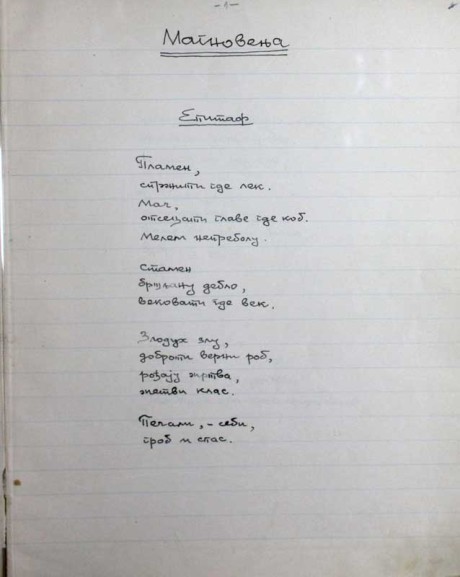 -1-
Магновења
Епитаф
Пламен,
стрхити где лек.
Мач,
отсецати главе где коб.
Мелем непреболу.
Стамен
бршљану дебло,
вековати где век.
Злодух злу,
доброти верни роб,
рођају жртва,
жетви клас.
Печали, - себи,
гроб и спас.